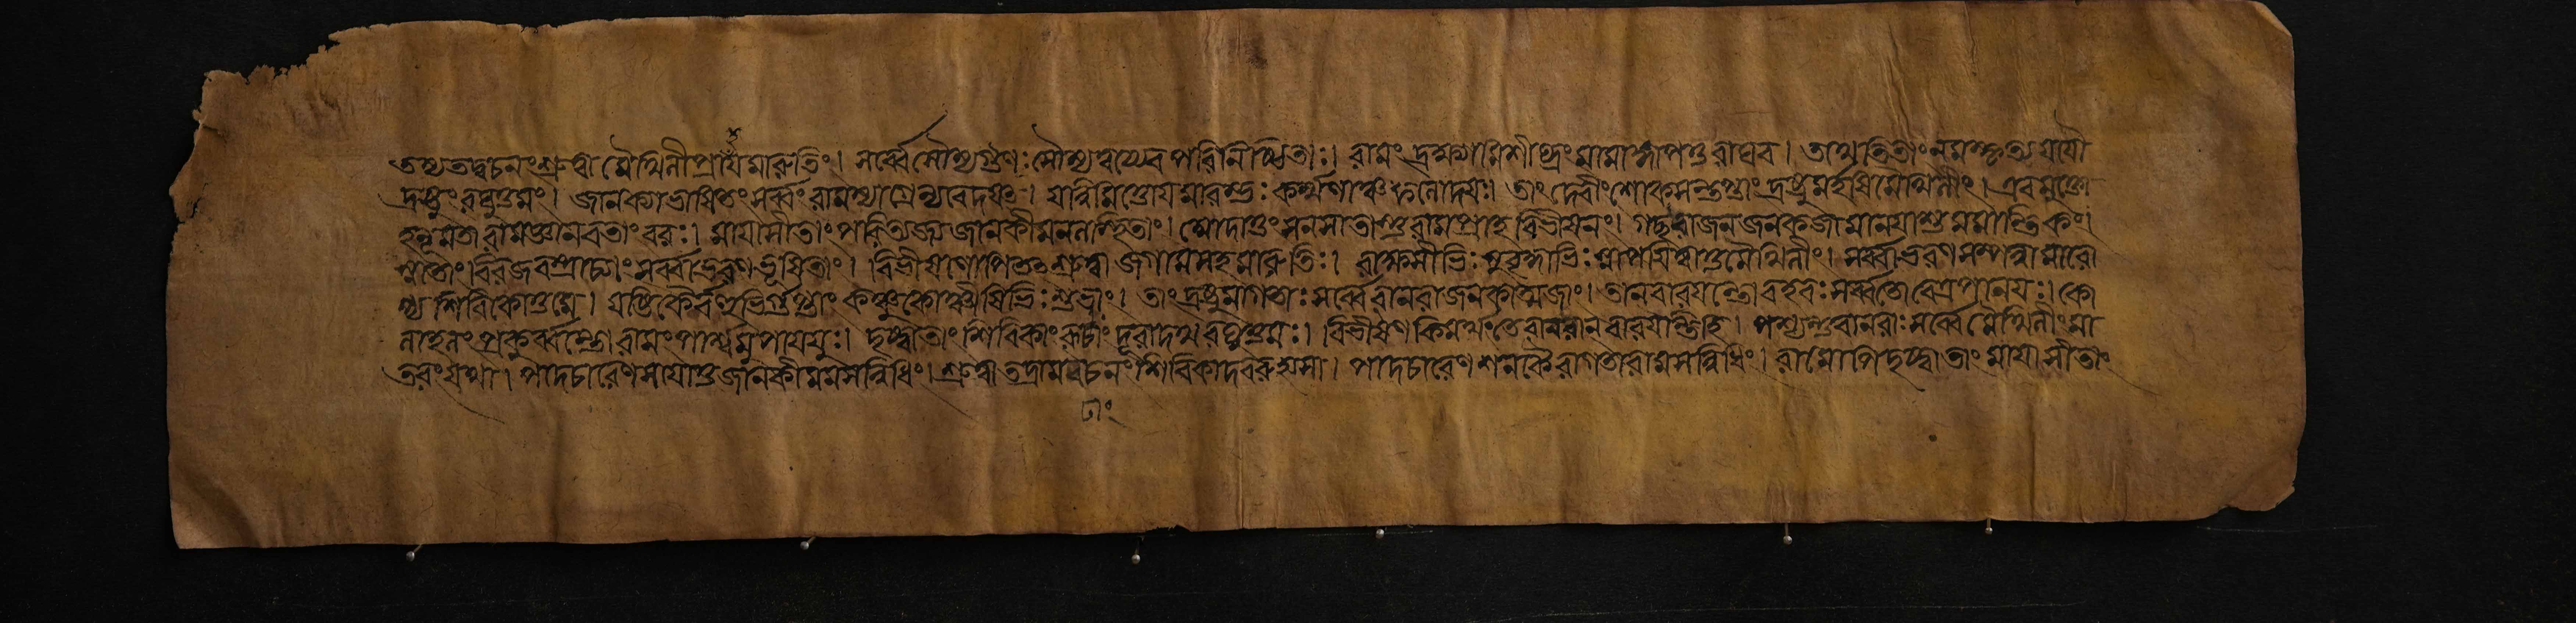 তস্য তদ্বচনং শ্রুত্বা মৈথিলী প্রাহ মারুতিং। সর্ব্বে সৌম্য গুণাঃ সৌম্য ত্বয্যেব পরিনিষ্ঠিতাঃ। রামং দ্রক্ষ্যামি শীঘ্রং মামাজ্ঞাপয়তু রাঘবঃ। তথেতি তাং নমস্কৃত্য যযৌ
দ্রষ্টুং রঘুত্তমং। জানক্যা ভাষিতং সর্ব্বং রামস্যাগ্রে ন্যবেদয়ৎ। যন্নিমিত্তোয়মারম্ভঃ কর্ম্মণাঞ্চ ফলোদয়ঃ। তাং দেবীং শোকসন্তপ্তাং দ্রষ্টুমর্হসি মৈথিলীং। এবমুক্তো
হনুমতা রামো জ্ঞানবতাং বরঃ। মায়াসীতাং পরিত্যজ্য জানকীমনলস্থিতাং। আদাতুং মনসা ধ্যাত্বা রামঃ প্রাহ বিভীষণং। গচ্ছ রাজন্ জনকজামানয়াশু মমান্তিকং।
স্নাতাং বিরজবস্ত্রাঢ্যাং সর্ব্বাভরণভূষিতাং। বিভীষণোপি তৎ শ্রুত্বা জগাম সহমারুতিঃ। রাক্ষসীভিঃ সুবৃদ্ধাভিঃ স্নাপয়িত্বা তু মৈথিলীং। সর্ব্বাভরণসম্পন্নামারো
প্য শিবিকোত্তমে। যাষ্টিকৈর্বহুভির্গুপ্তাং কঞ্চুকোষ্ণীষিভিঃ শুভাং। তাং দ্রষ্টুমাগতাঃ সর্ব্বে বানরা জনকাত্মজাং। তান্ বারয়ন্তো বহবঃ সর্ব্বতো বেত্রপাণয়ঃ। কো
লাহলং প্রকুর্ব্বন্তো রামপার্শ্বমুপাযযুঃ। দৃষ্ট্বা তাং শিবিকারূঢ়াং দূরাদথ রঘুত্তমঃ। বিভীষণ কিমর্থং তে বানরান্ বারয়ন্তি হি। পশ্যন্তু বানরাঃ সর্ব্বে মৈথিলীং মা
তরং যথা। পাদচারেণ সায়াতু জানকী মম সন্নিধিং। শ্রুত্বা তদ্রামবচনং শিবিকাদবরুহ্য সা। পাদচারেণ শনকৈরাগতা রামসন্নিধিং। রামোপি দৃষ্ট্বা তাং মায়াসীতাং